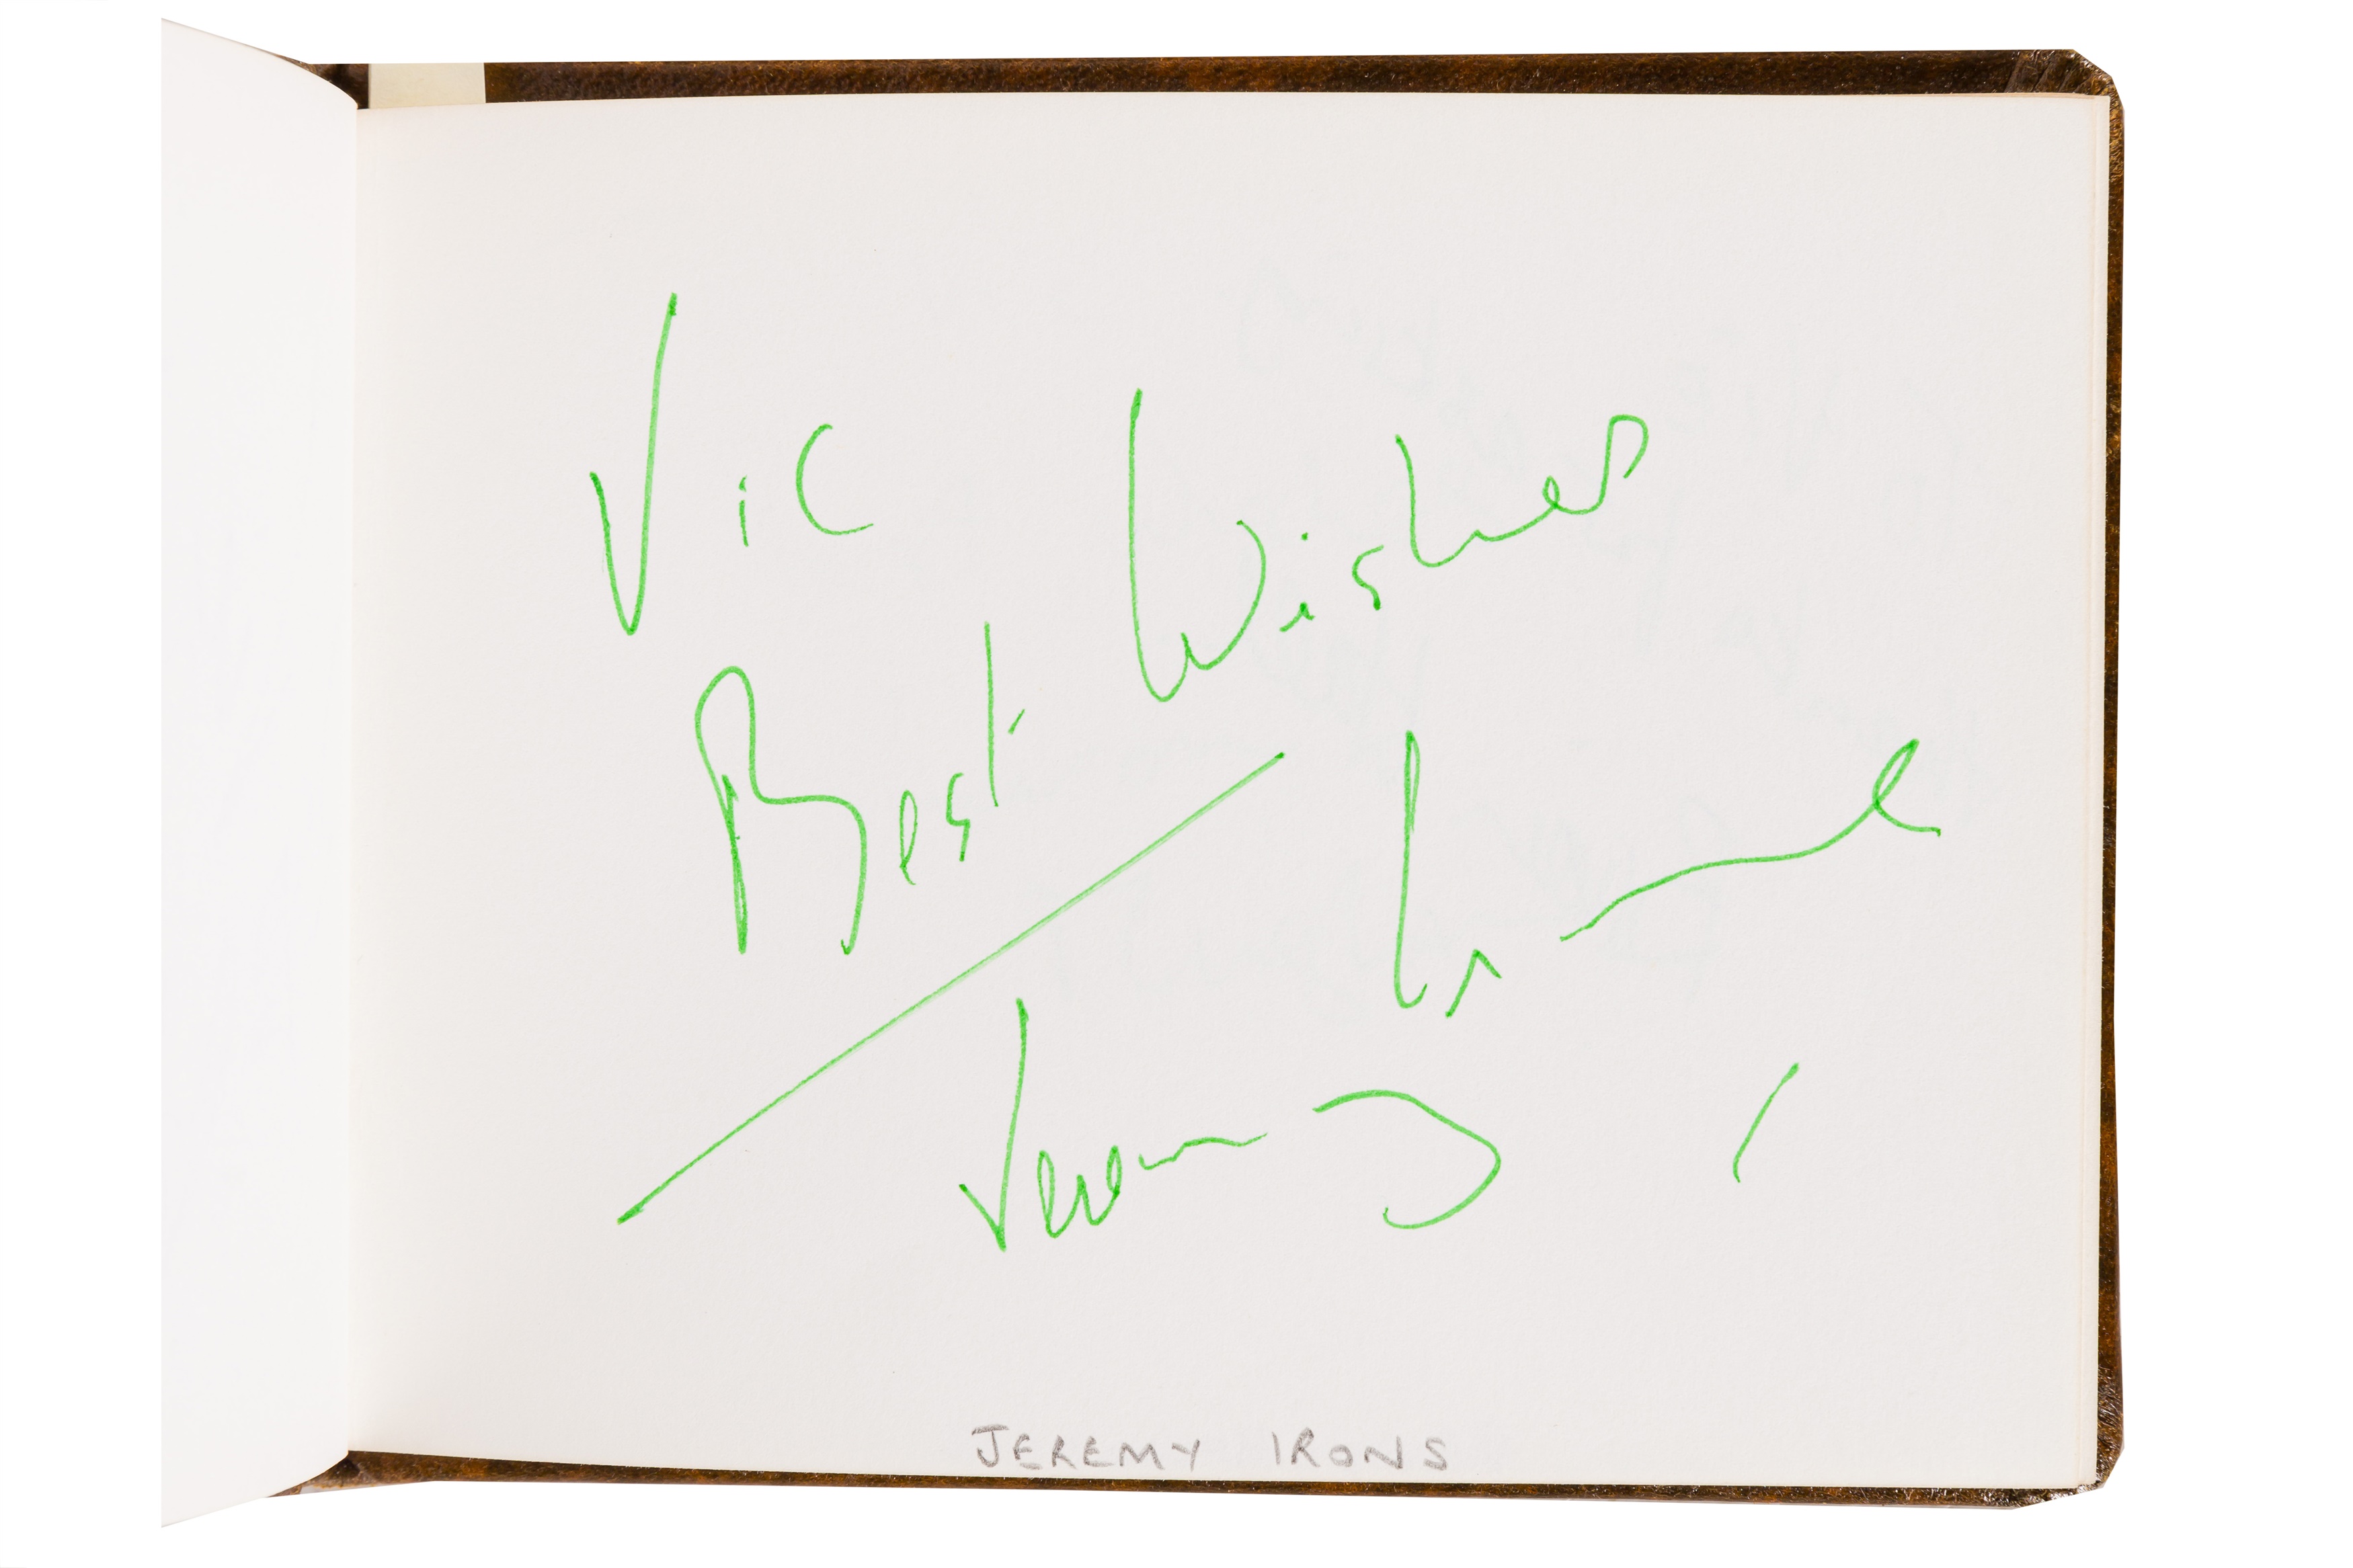 Vic
Best Wishes
Jeremy Irons
JEREMY IRONS